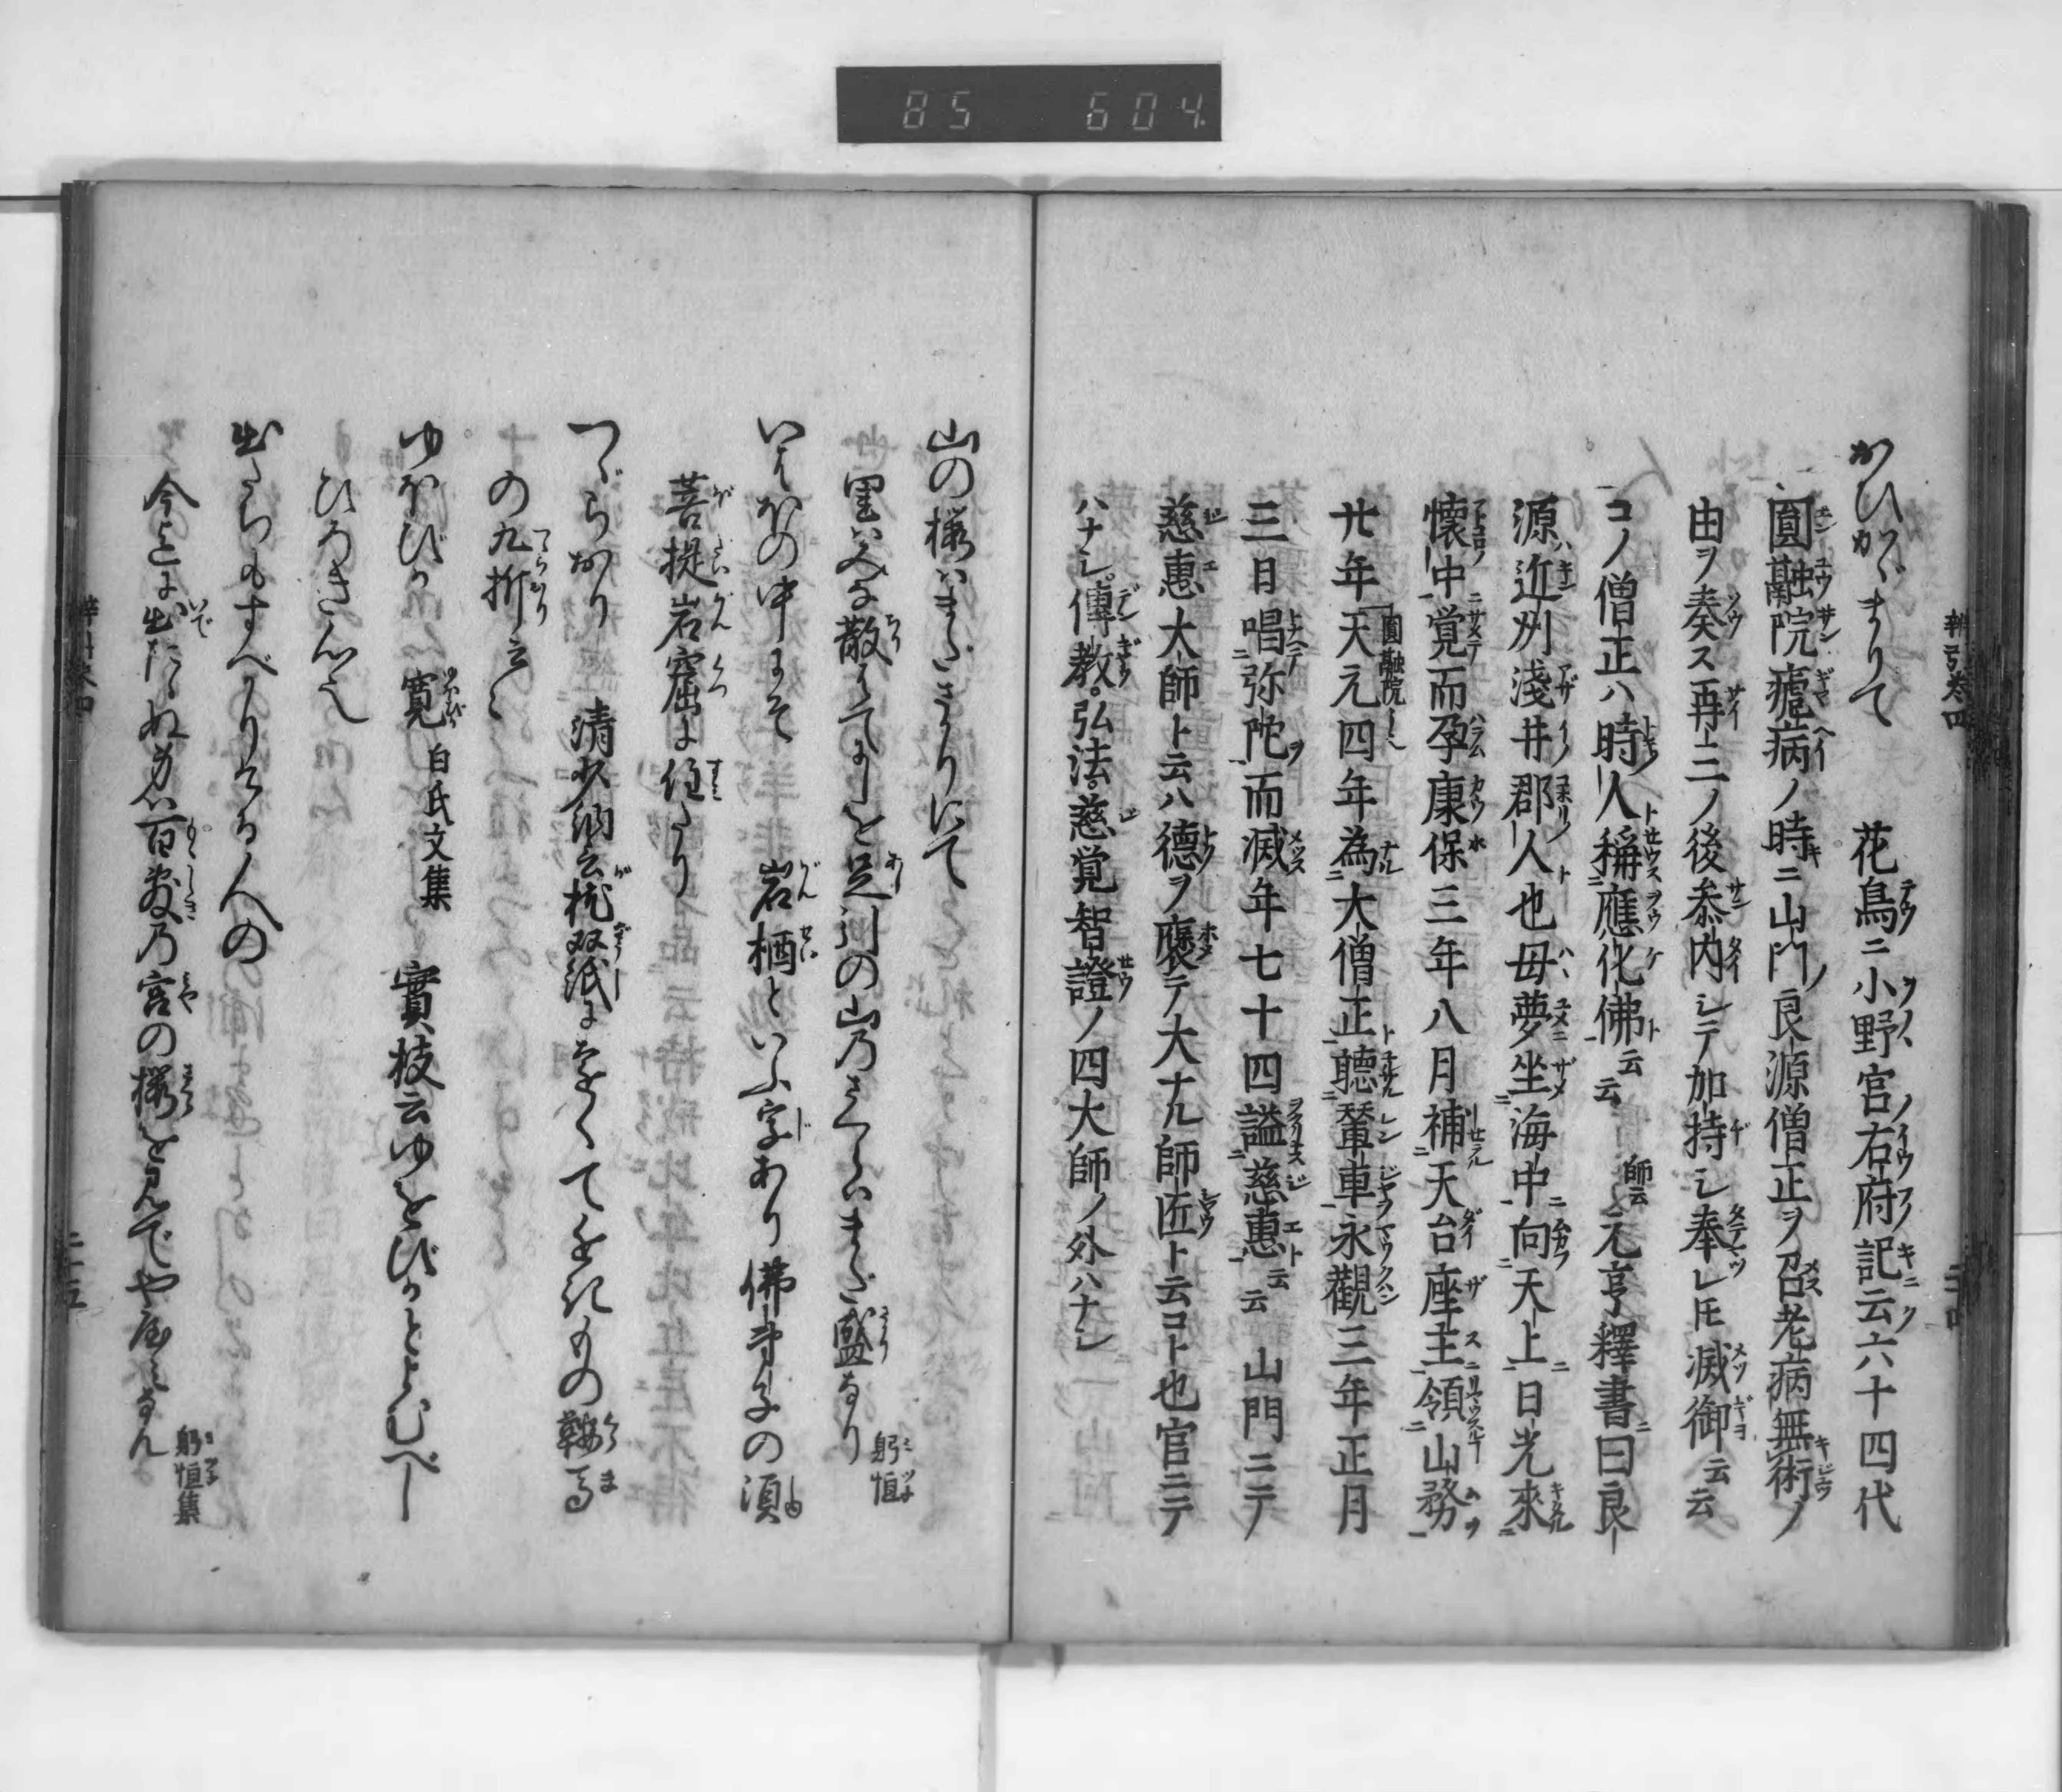 85 604
おひかゞまりて 花鳥ニ小野宮右府記云六十四代
圓融院瘧病ノ時ニ山門ノ良源僧正ヲ召老病無術ノ
由ヲ奏ス再三ノ後参内シテ加持シ奉レ𪜈滅御云云
コノ僧正ハ時ノ人稱應化佛云云 師云 元亨釋書曰良
源近刕淺井郡人也母夢坐海中向天上日光來
懐中覚而孕康保三年八月補天台座主領山務
廿年天元四年為大僧正聽輦車永觀三年正月
圓融院
三日唱弥陀而滅年七十四謚慈惠云云 山門ニテ
慈惠大師ト云ハ德ヲ襃テ大ナル師匠ト云コト也官ニテ
ハナシ。傳教。弘法。慈覚智證ノ四大師ノ外ハナシ
山の櫻はまださかりにて
里はみな散はてにしを足引の山乃さくらいまだ盛なり 躬恒
いはほの中にそ 岩栖といふ字あり佛弟子の須
菩提岩窟に住たり
つゞらおり 清少納言枕双紙にちかくてとほきもの鞍馬
の九折云々
ゆほびか 寛 白氏文集 實枝云ゆをびかとよむべし
ひろき心也
出たちもすべかりける人の
今迄に出たゝぬ身は百敷乃宮の櫻を見でや 躬恒集